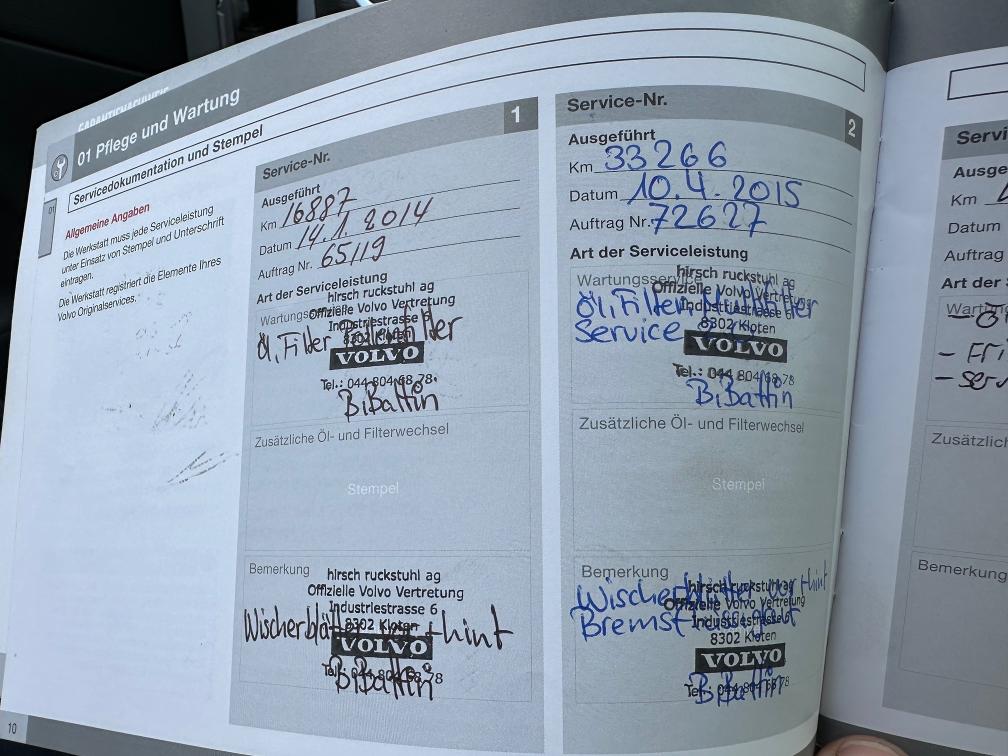 01 Pflege und Wartung
Servicedokumentation und Stempel
01
Allgemeine Angaben
Die Werkstatt muss jede Serviceleistung
unter Einsatz von Stempel und Unterschrift
eintragen.
Die Werkstatt registriert die Elemente Ihres
Volvo Originalservices.
10
Service-Nr.
1
Ausgeführt
Km 16887
Datum 14.1.2014
Auftrag Nr. 65119
Art der Serviceleistung
hirsch ruckstuhl ag
Offizielle Volvo Vertretung
Industriestrasse 6
8302 Kloten
Öl, Filter
VOLVO
Tel.: 044 804 68 78
B.Battin
Zusätzliche Öl- und Filterwechsel
Stempel
Bemerkung
hirsch ruckstuhl ag
Offizielle Volvo Vertretung
Industriestrasse 6
8302 Kloten
Wischerblätter vor + hint
VOLVO
Tel.: 044 804 68 78
B.Battin
Service-Nr.
2
Ausgeführt
Km 33266
Datum 10.4.2015
Auftrag Nr. 72627
Art der Serviceleistung
Wartungsservice
hirsch ruckstuhl ag
Offizielle Volvo Vertretung
Industriestrasse 6
Öl, Filter,
8302 Kloten
Service
VOLVO
Tel.: 044 804 68 78
B.Battin
Zusätzliche Öl- und Filterwechsel
Stempel
Bemerkung
hirsch ruckstuhl ag
Wischerblätter vor + hint
Offizielle Volvo Vertretung
Industriestrasse 6
Bremsflüssigkeit
8302 Kloten
VOLVO
Tel.: 044 804 68 78
B.Battin
Servi
Ausge
Km
Datum
Auftrag
Art der
- Ö
- Fri
- Serv
Zusätzlic
Bemerkung